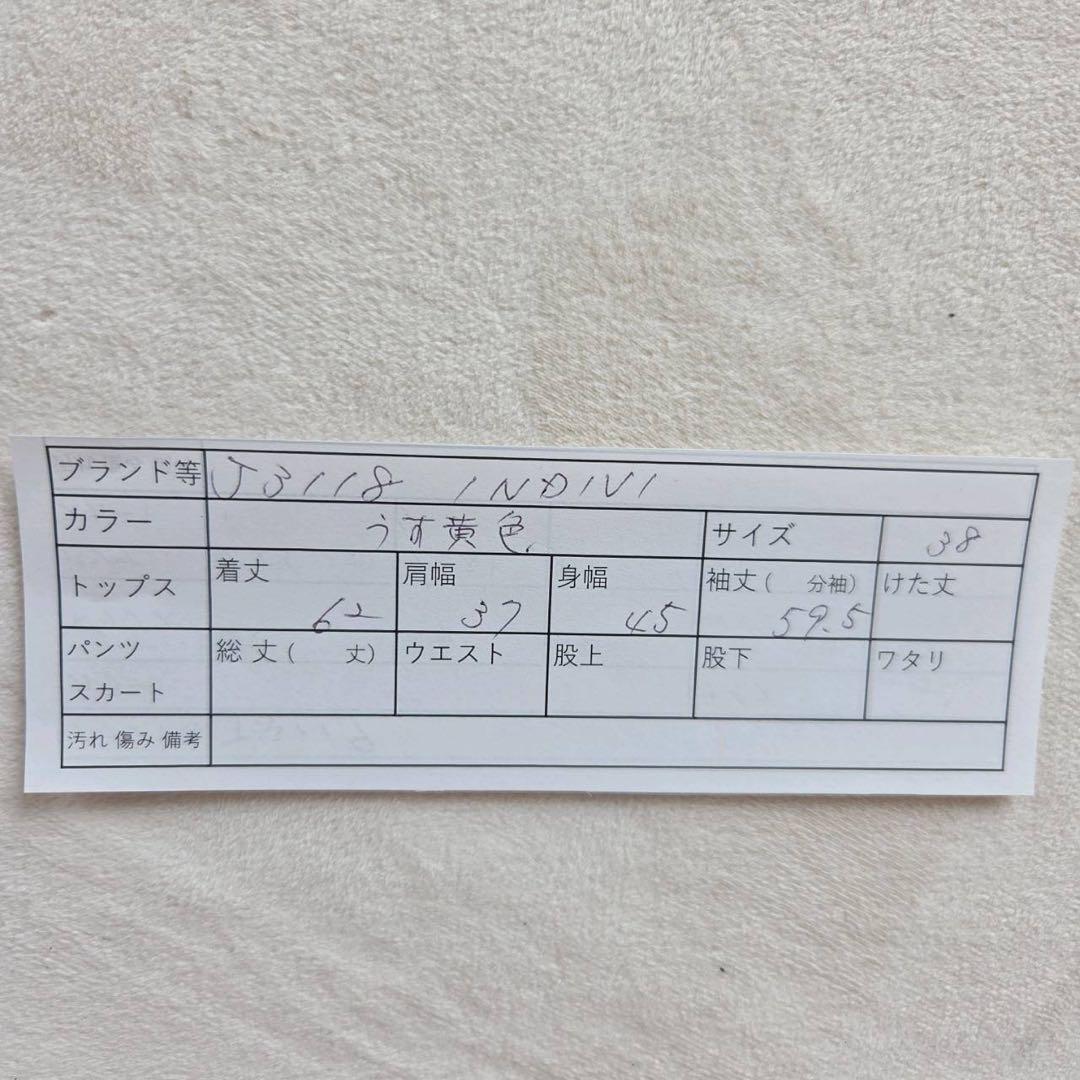 ブランド等 J3118 INDIVI
カラー うす黄色 サイズ 38
トップス 着丈 62 肩幅 37 身幅 45 袖丈( 分袖) 59.5 けた丈
パンツ 総丈( 丈) ウエスト 股上 股下 ワタリ
スカート
汚れ 傷み 備考